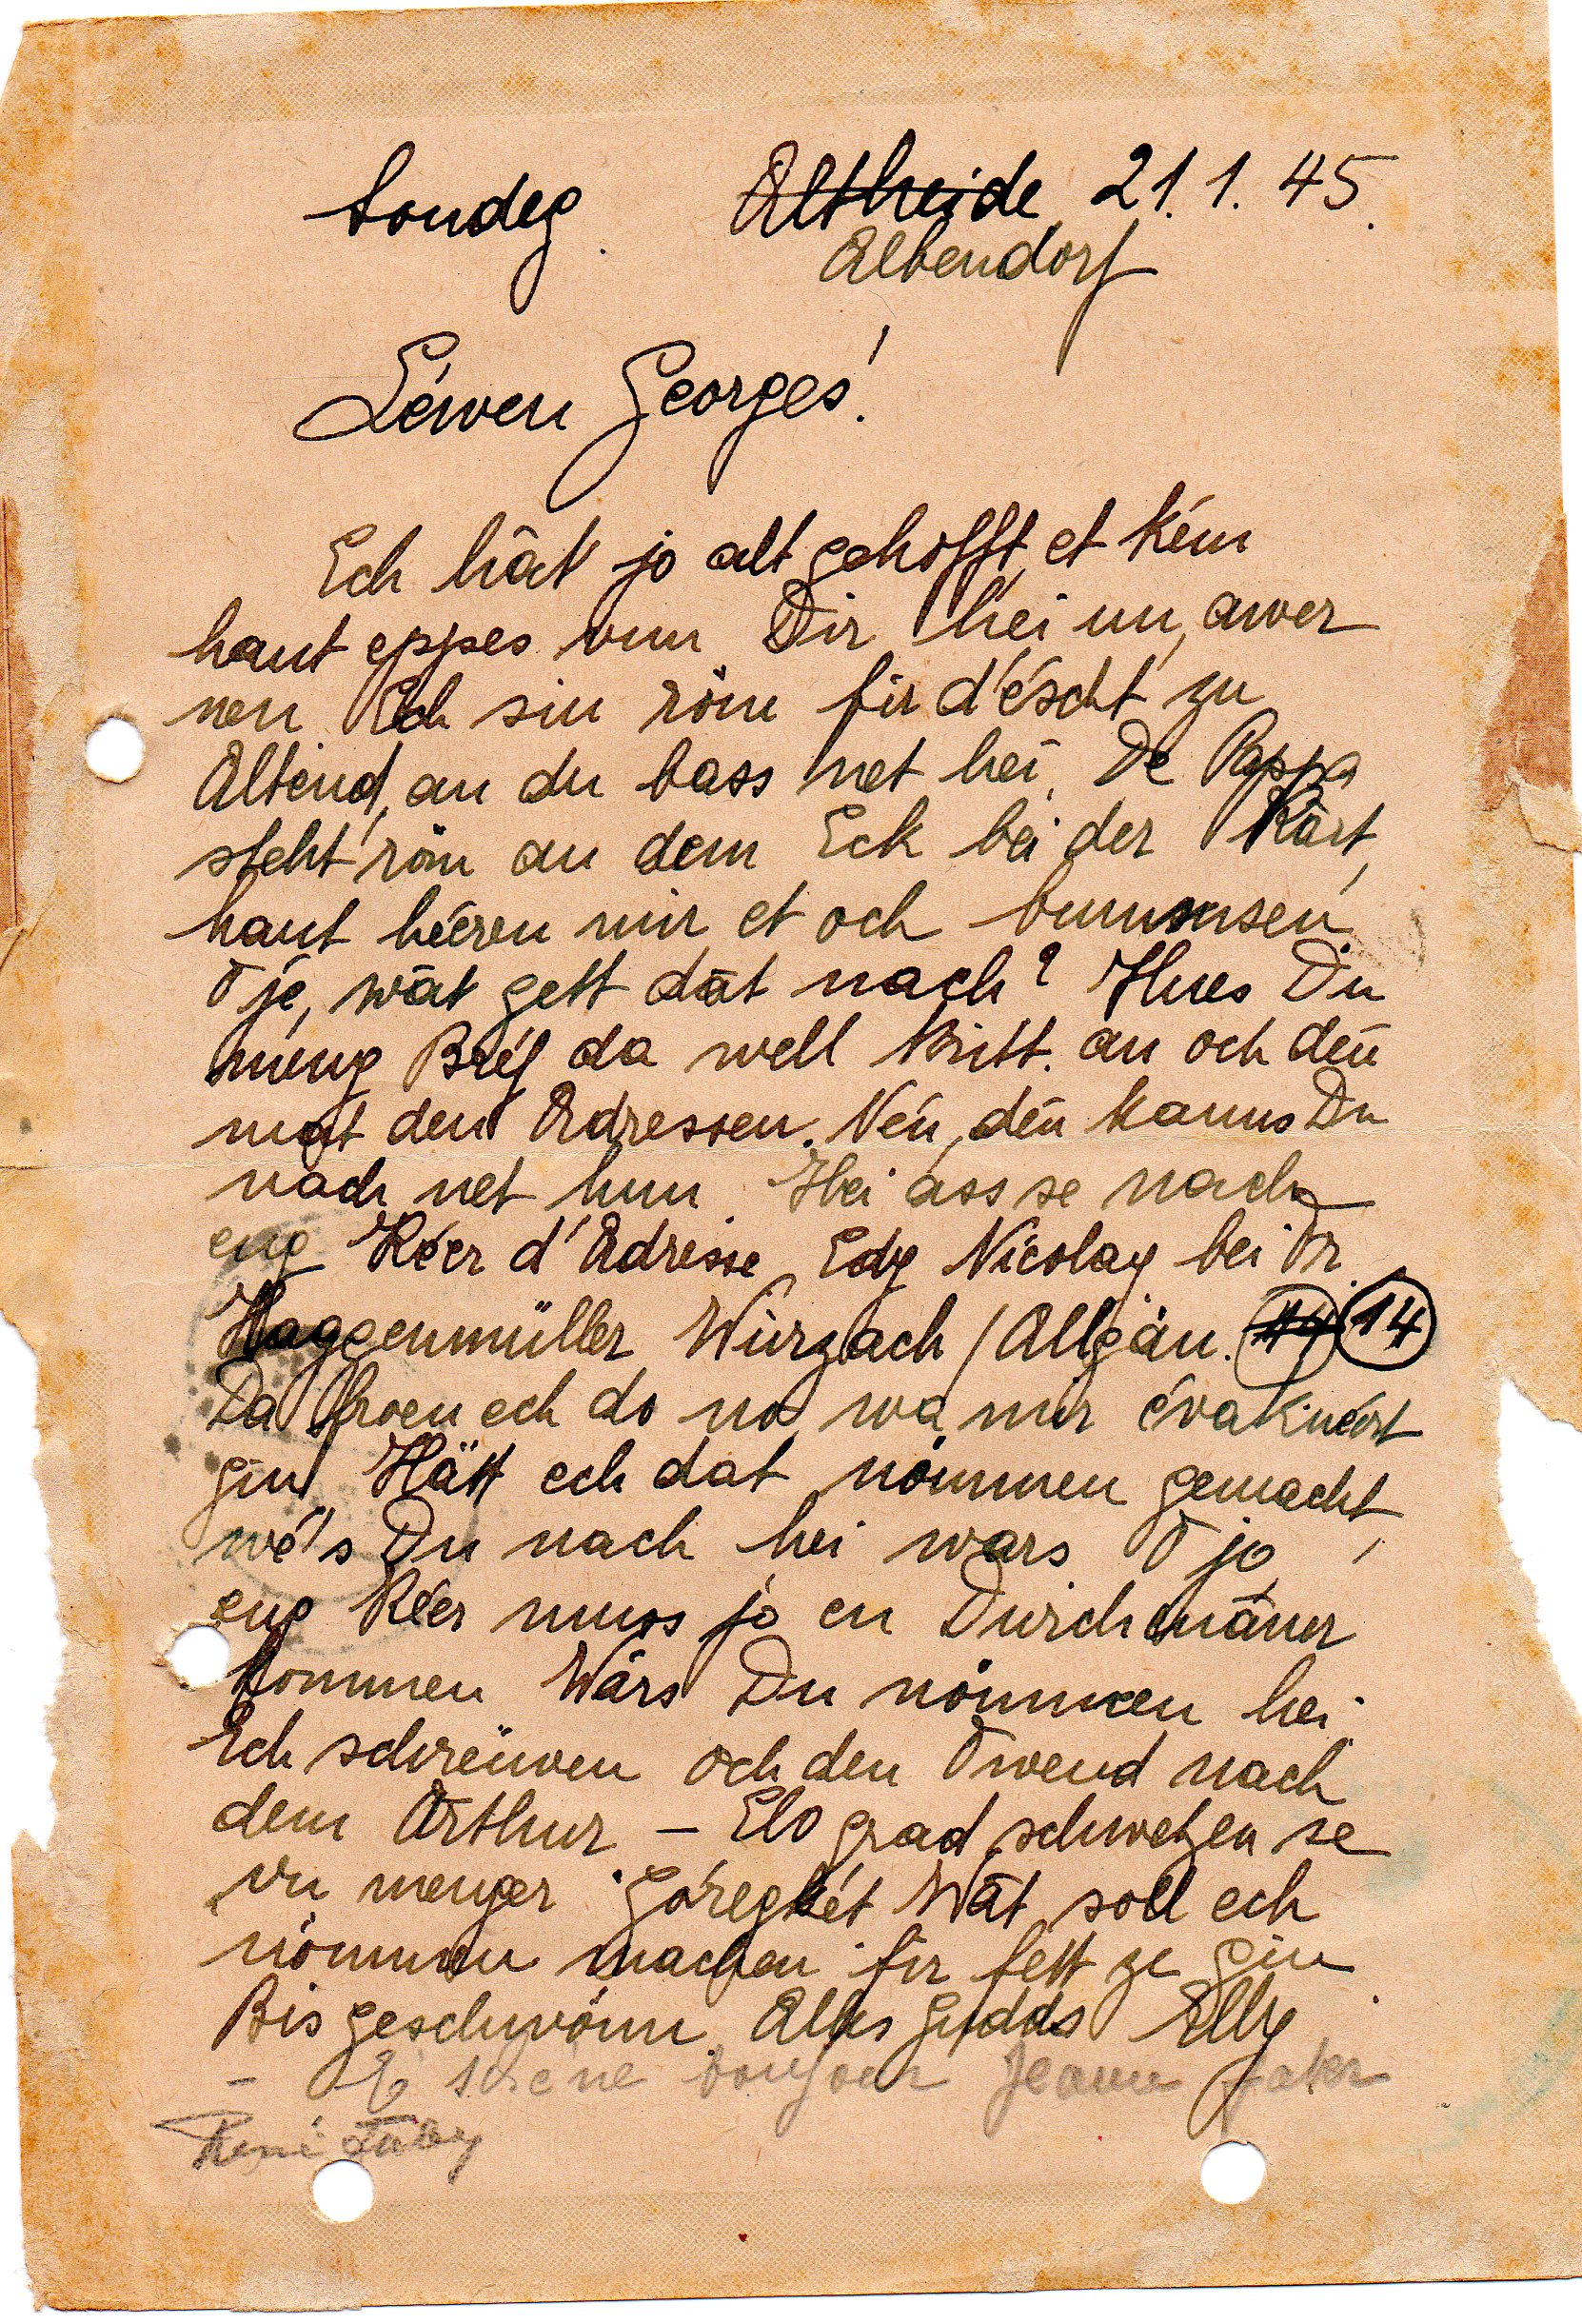 Sondeg Altheide 21.1.45.
Albendorf
Léwen Georges!
Ech hät jo alt gehofft, et kém
haut eppes vun Dir hei un, awer
nen Ech sin röm fir d'éscht zu
Albend, an du bass net hei. De Pappa
steht röm an dem Eck bei der Kart,
haut héeren mir et och bummsen.
O jé, wât gett dât nach? Hues Du
meng Bréf da well kritt. an och dén
mat den Adressen. Nén, dén kanns Du
nach net hun. Hei ass se nach
eng Kéer d'Adresse Edy Nicolay bei Dr.
Haggenmüller Wurzach / Allgäu. 14 14
Da froen ech do no wa mir évakuéert
gin. Hätt ech dat nömmen gemacht,
wé's Du nach hei wars. O jo,
eng Kéer muss jo en Durchenâner
kommen Wärs Du nömmen hei.
Ech schreiwen och den Owend nach
dem Arthur – Elo grad schwetzen se
vu menger Goregkét Wât soll ech
nömmen machen fir fett ze gin.
Bis geschwönn. Alles Gudds Elly
- E schéne bonjour Jeanne
René